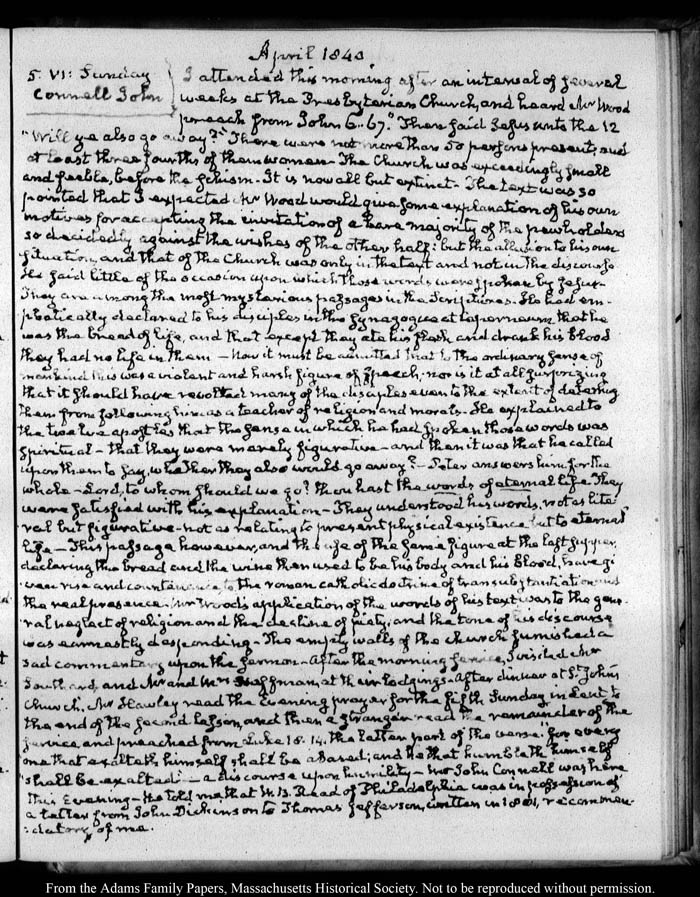 April 1840
5. VI: Sunday
Connell John
I attended this morning after an interval of several
weeks at the Presbyterian Church, and heard Mr Wood
preach from John 6. 67. "Then said Jesus unto the 12
"Will ye also go away?" There were not more than 50 persons present, and
at least three fourths of them women. The Church was exceedingly small
and feeble, before the schism. It is now all but extinct. The text was so
pointed that I expected Mr Wood would give some explanation of his own
motives for accepting the invitation of a bare majority of the pewholders
so decidedly against the wishes of the other half: but the allusion to his own
situation, and that of the Church was only in the text and not in the discourse
He said little of the occasion upon which those words were spoken by Jesus.
They are among the most mysterious passages in the Scriptures. He had em-
phatically declared to his disciples in the Synagogue at Capernaum that he
was the bread of life, and that except they ate his flesh and drank his blood
they had no life in them — Now it must be admitted that to the ordinary sense of
mankind this was a violent and harsh figure of speech, nor is it at all surprizing
that it should have revolted many of the disciples even to the extent of deterring
them from following him as a teacher of religion and morals. He explained to
the twelve apostles that the sense in which he had spoken those words was
spiritual — that they were merely figurative — and then it was that he called
upon them to say, whether they also would go away? — Peter answers him for the
whole — Lord, to whom should we go? thou hast the words of eternal life. They
were satisfied with his explanation — They understood his words, not as lite
ral but figurative — not as relating to present physical existence but to eternal
life — This passage however, and the use of the same figure at the last supper,
declaring the bread and the wine then used to be his body and his blood, have gi
ven rise and countenance, to the roman catholic doctrine of transubstantiation and
the real presence. Mr Wood's application of the words of his text was to the gene
ral neglect of religion and the decline of piety, and the tone of his discourse
was earnestly desponding — The empty walls of the church furnished a
sad commentary upon the sermon — After the morning service, I visited Mr
Southard, and Mr and Mrs Hoffman, at their lodgings — After dinner at St. John's
Church, Mr Hawley read the Evening prayer for the fifth Sunday in Lent to
the end of the second lesson, and then a stranger read the remainder of the
service and preached from Luke 18. 14. the latter part of the verse. for every
one that exalteth himself shall be abased; and he that humbleth himself
"shall be exalted: — a discourse upon humility — Mr John Connell was here
this Evening — He told me that W. B. Read of Philadelphia was in possession of
a letter from John Dickinson to Thomas Jefferson, written in 1801, recommen-
:datory of me.
From the Adams Family Papers, Massachusetts Historical Society. Not to be reproduced without permission.